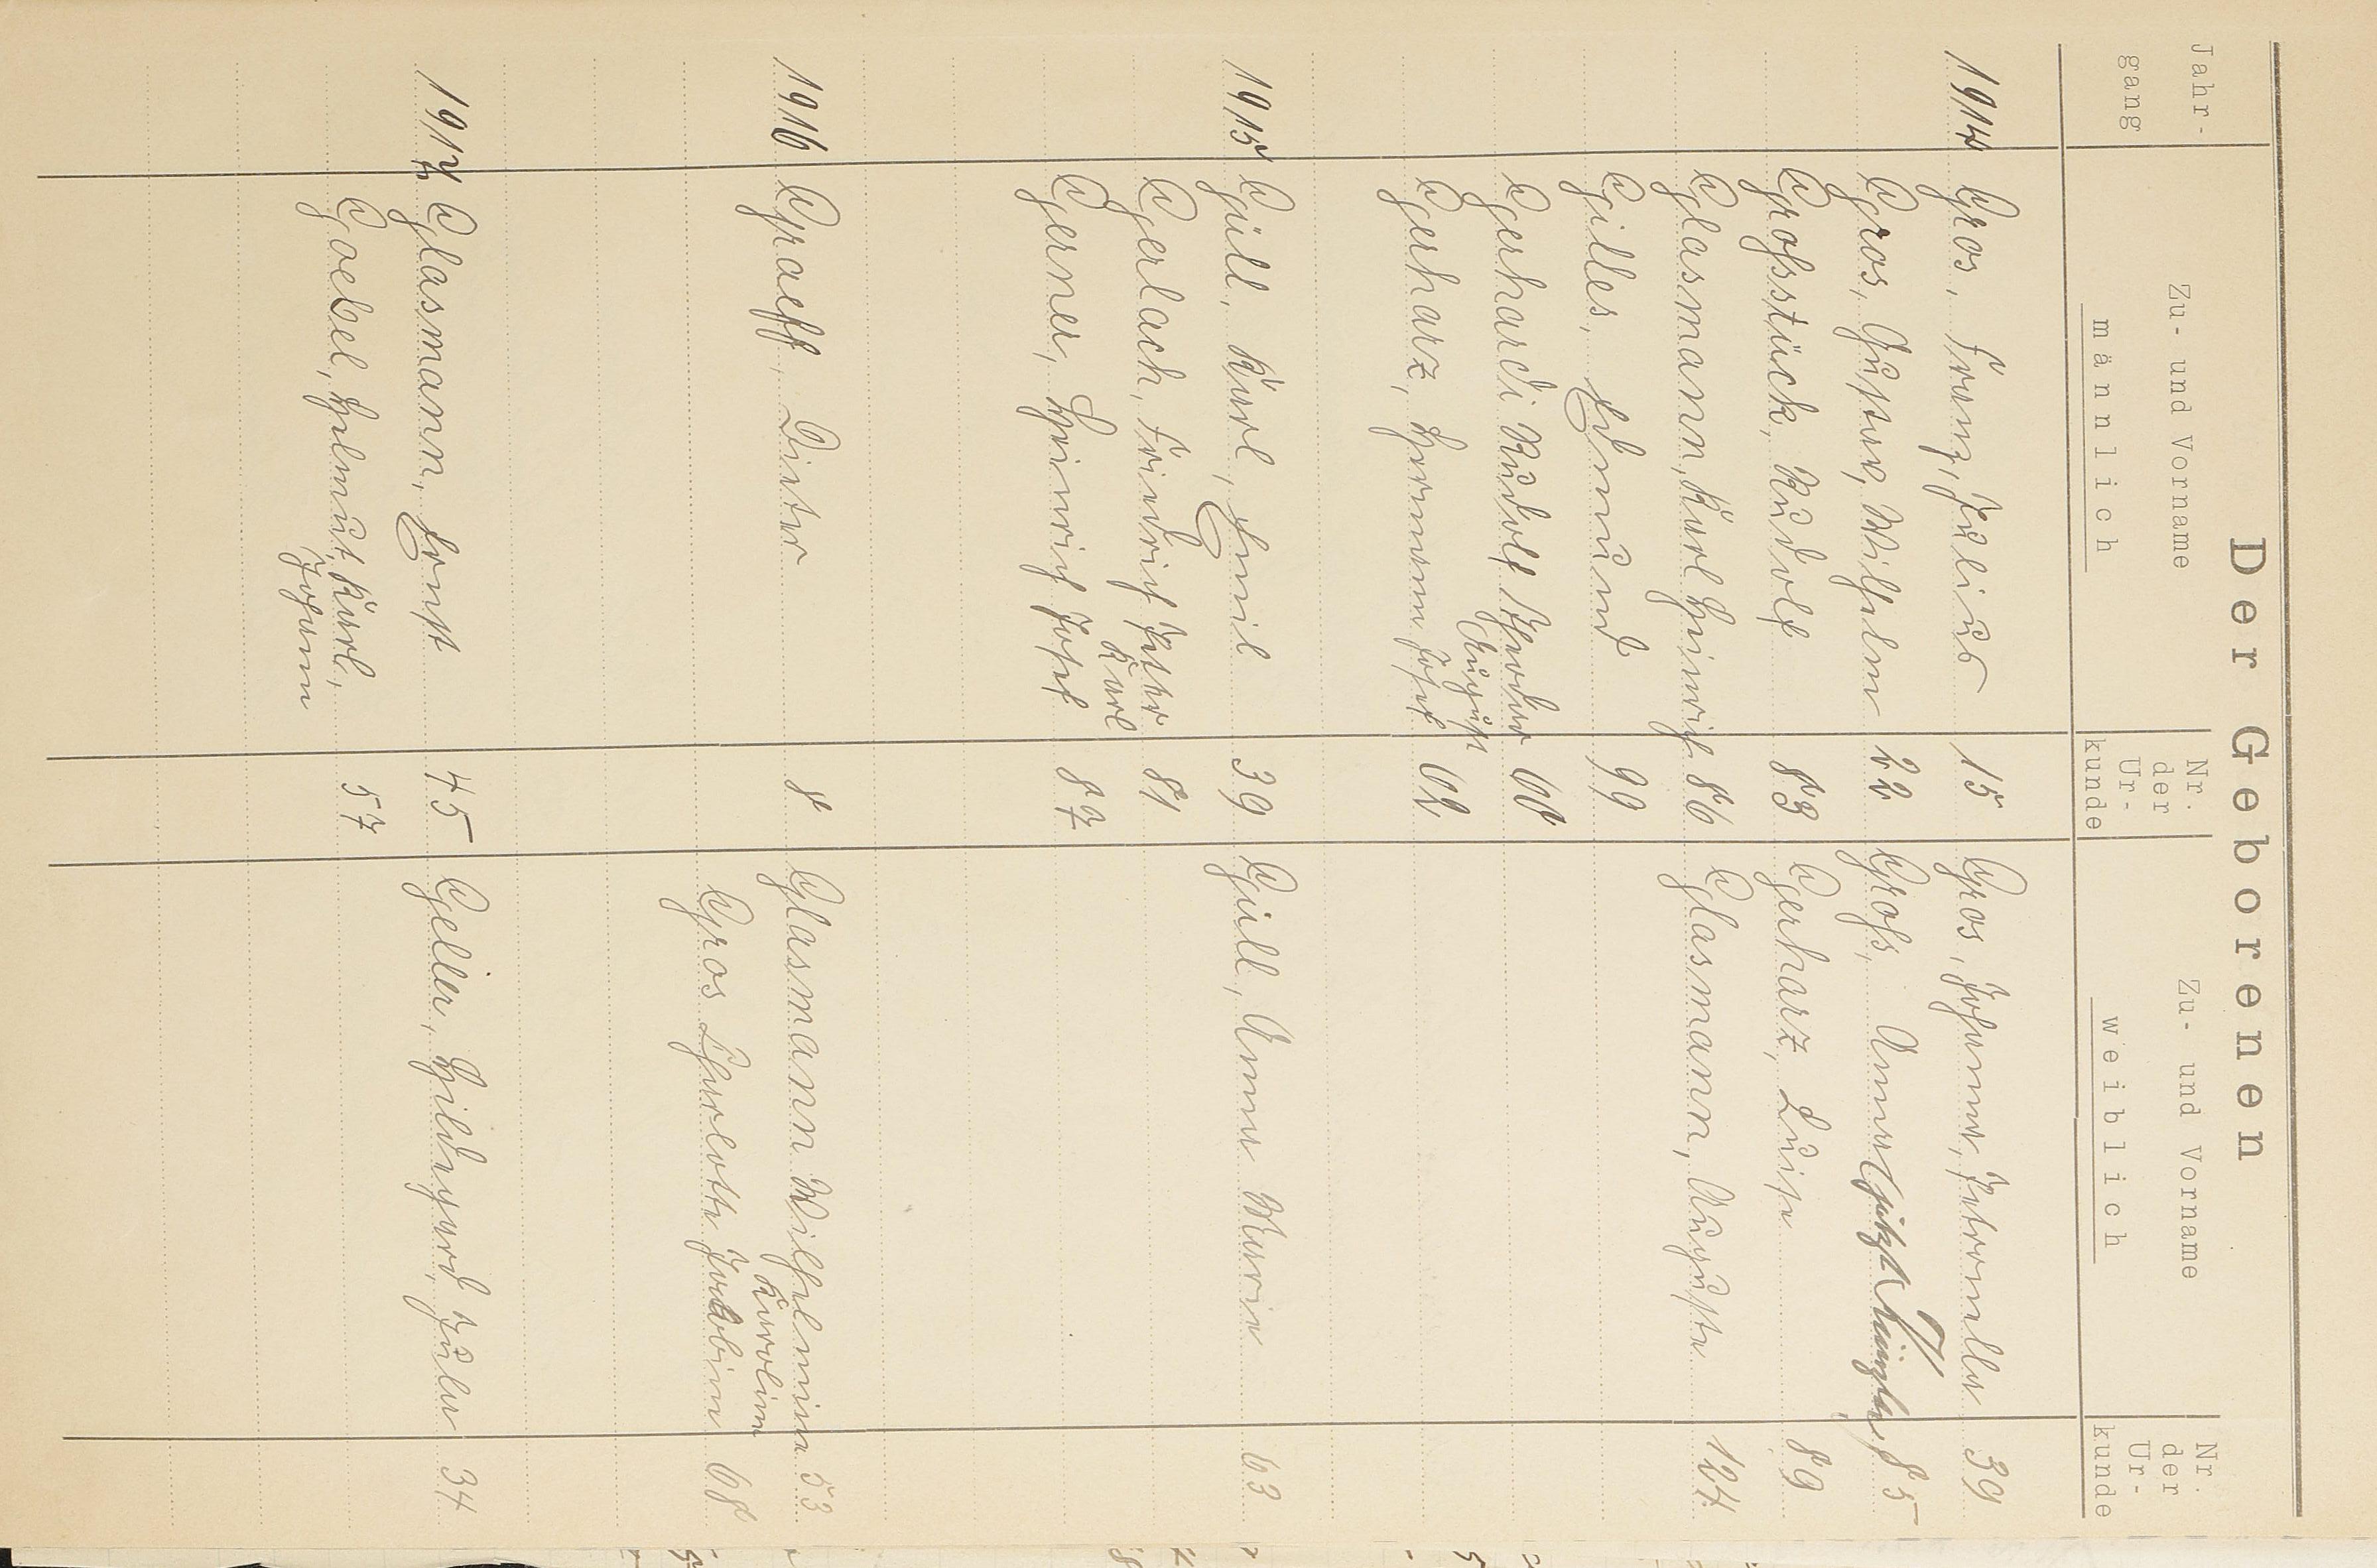 Der Geborenen
Jahr-
gang
Zu- und Vorname
männlich
Nr.
der
Ur-
kunde
Zu- und Vorname
weiblich
Nr.
der
Ur-
kunde
1914 Gros, Franz, Julius 15 Gros, Johanna, Petronella 39
Gros, Gustav, Wilhelm 22 Groß, Anna 85
Großstück, Rudolf 83 Gerharz, Luise 89
Glasmann, Karl Heinrich 86 Glasmann, Auguste 124
Gilles, Edmund 99
Gerhardi Rudolf Theodor
August
Gerharz, Hermann Josef
1915 Güll, Karl, Emil 39 Güll, Anna Maria 63
Gerlach, Friedrich Peter 81
Karl
Gerner, Heinrich Josef 87
1916 Graeff, Dieter 8 Glasmann Wilhelmine 53
Karoline
Gros Charlotte Jakobine 68
1917 Glasmann, Ernst 45 Geller, Hildegard, Julia 34
Goebel, Helmut, Karl, 57
Johann